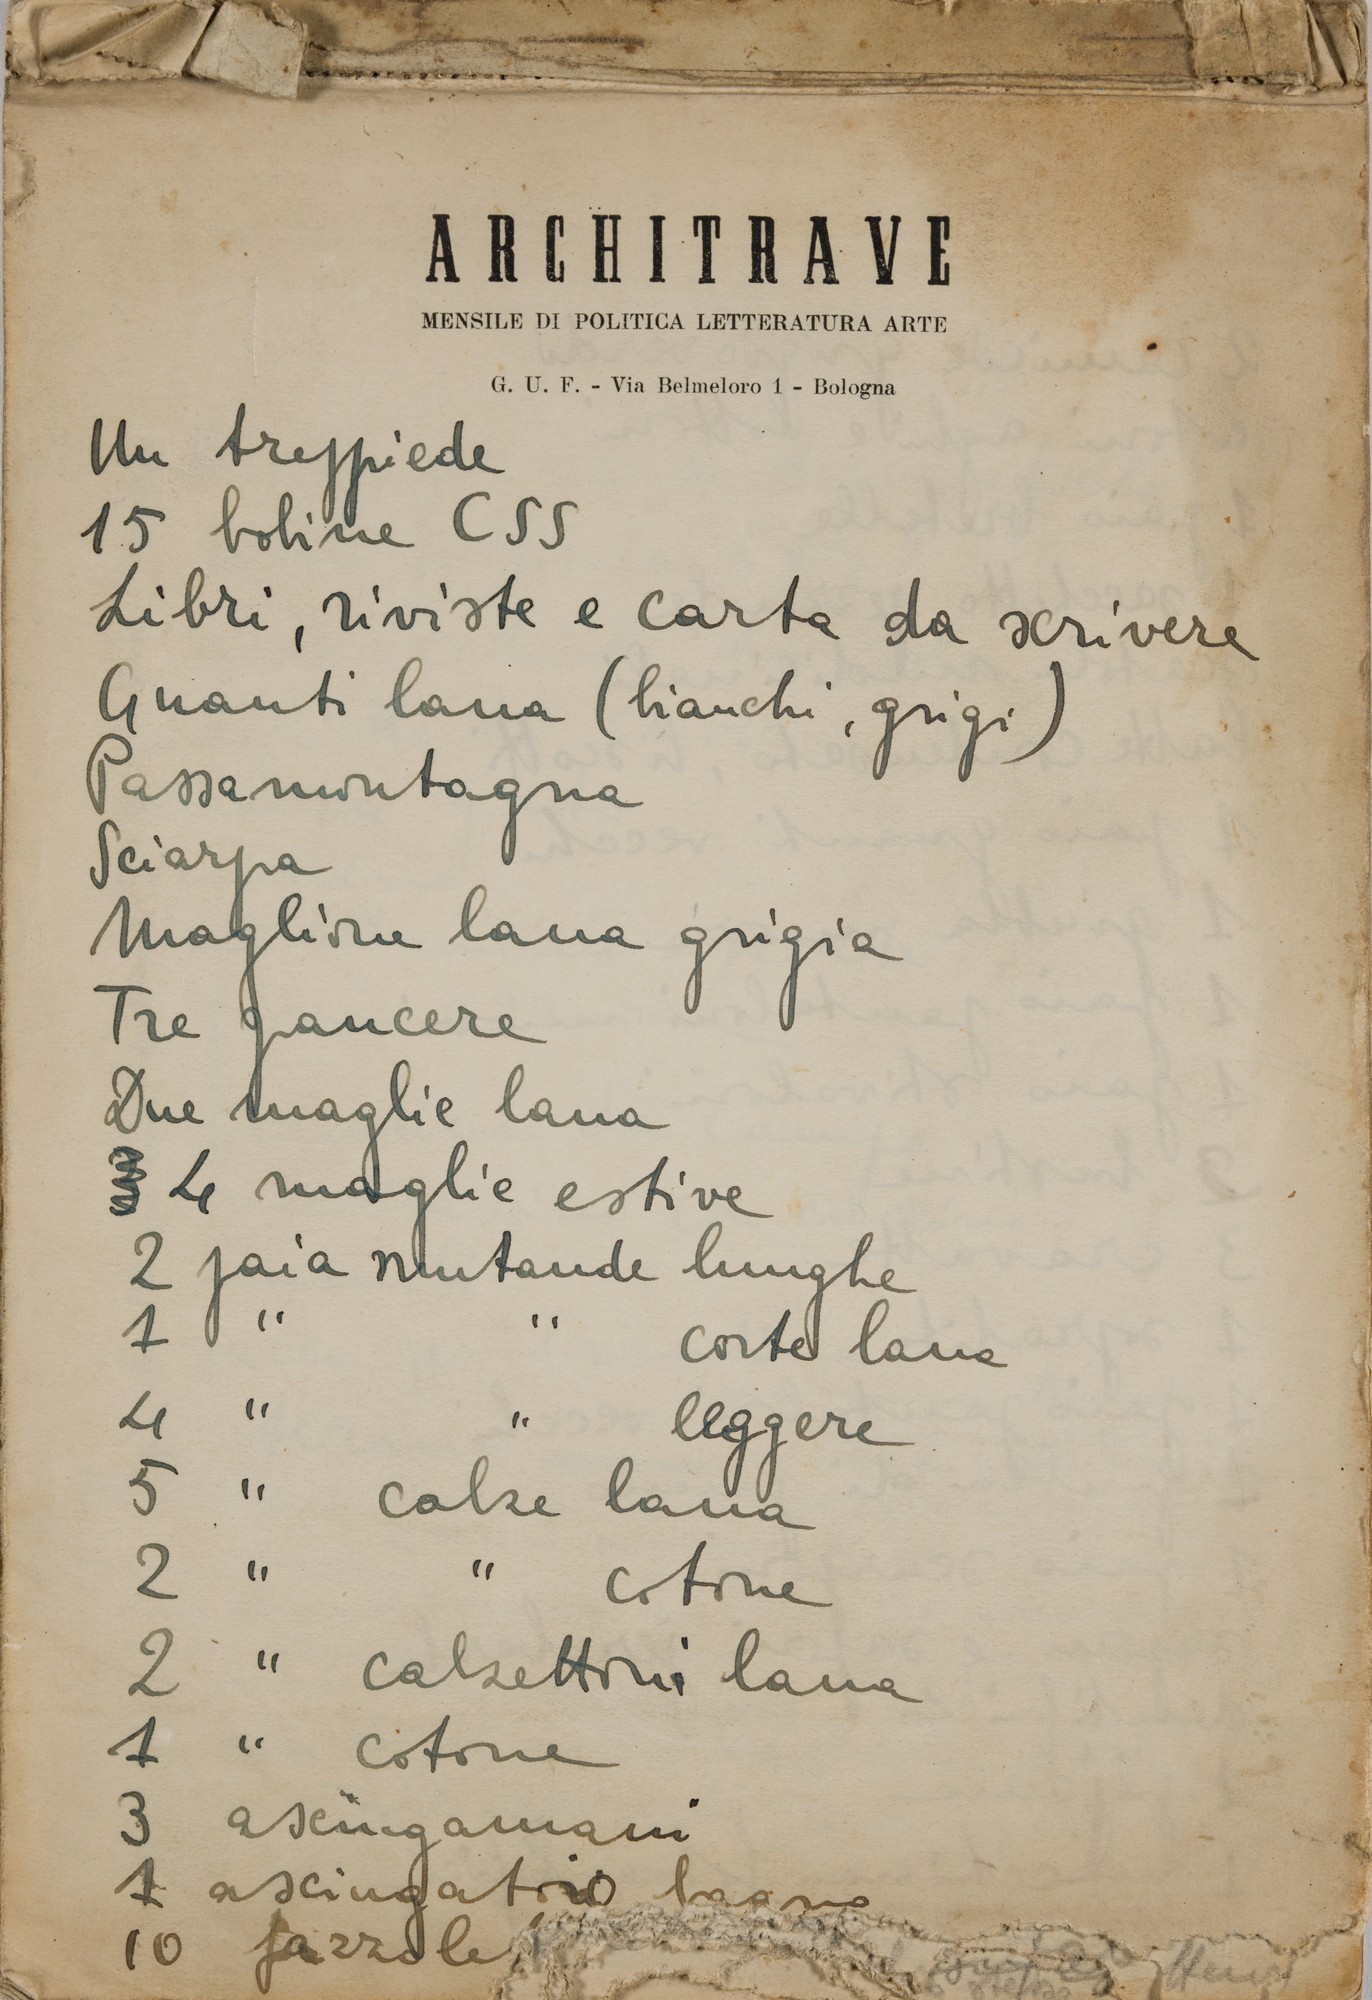 ARCHITRAVE
MENSILE DI POLITICA LETTERATURA ARTE
G. U. F. - Via Belmeloro 1 - Bologna
Un treppiede
15 bobine CSS
Libri, riviste e carta da scrivere
Guanti lana (bianchi, grigi)
Passamontagna
Sciarpa
Maglione lana grigia
Tre pancere
Due maglie lana
4 maglie estive
2 paia mutande lunghe
1 " " corte lana
4 " " leggere
5 " calze lana
2 " " cotone
2 " calzettoni lana
1 " cotone
3 asciugamani
1 asciugatoio bagno
10 fazzoletti